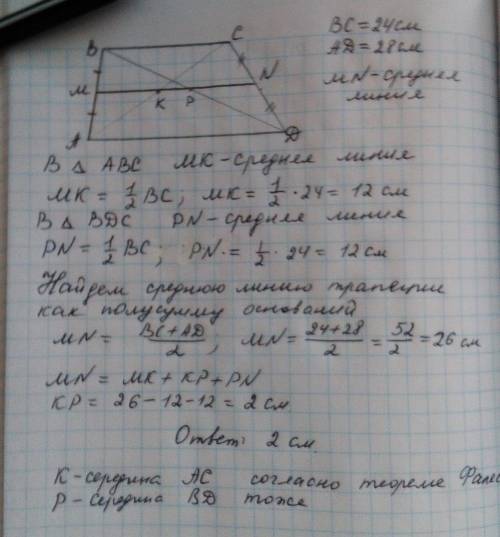 BC = 24 см
AD = 28 см
MN - средняя
линия
B
C
M
N
K
P
A
D
В Δ ABC MK - средняя линия
MK = 1/2 BC; MK = 1/2 · 24 = 12 см
В Δ BDC PN - средняя линия
PN = 1/2 BC; PN = 1/2 · 24 = 12 см
Найдем среднюю линию трапеции
как полусумму оснований
MN = BC + AD / 2, MN = 24+28 / 2 = 52 / 2 = 26 см
MN = MK + KP + PN
KP = 26 - 12 - 12 = 2 см.
Ответ: 2 см.
K - середина AC согласно теореме
P - середина BD тоже